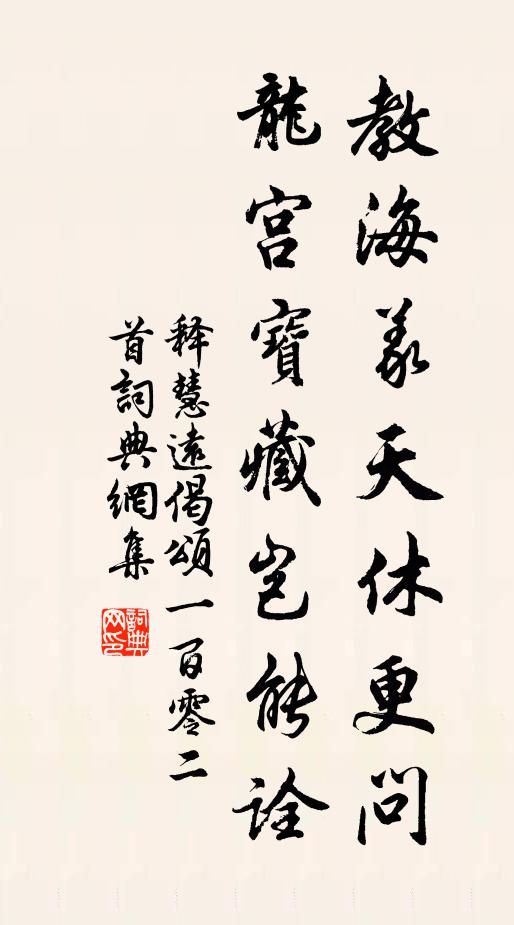 教海義天休更問
龍宮寶藏豈能詮
释慧遠偈頌一百零二
首詞典網集
詞典
网印